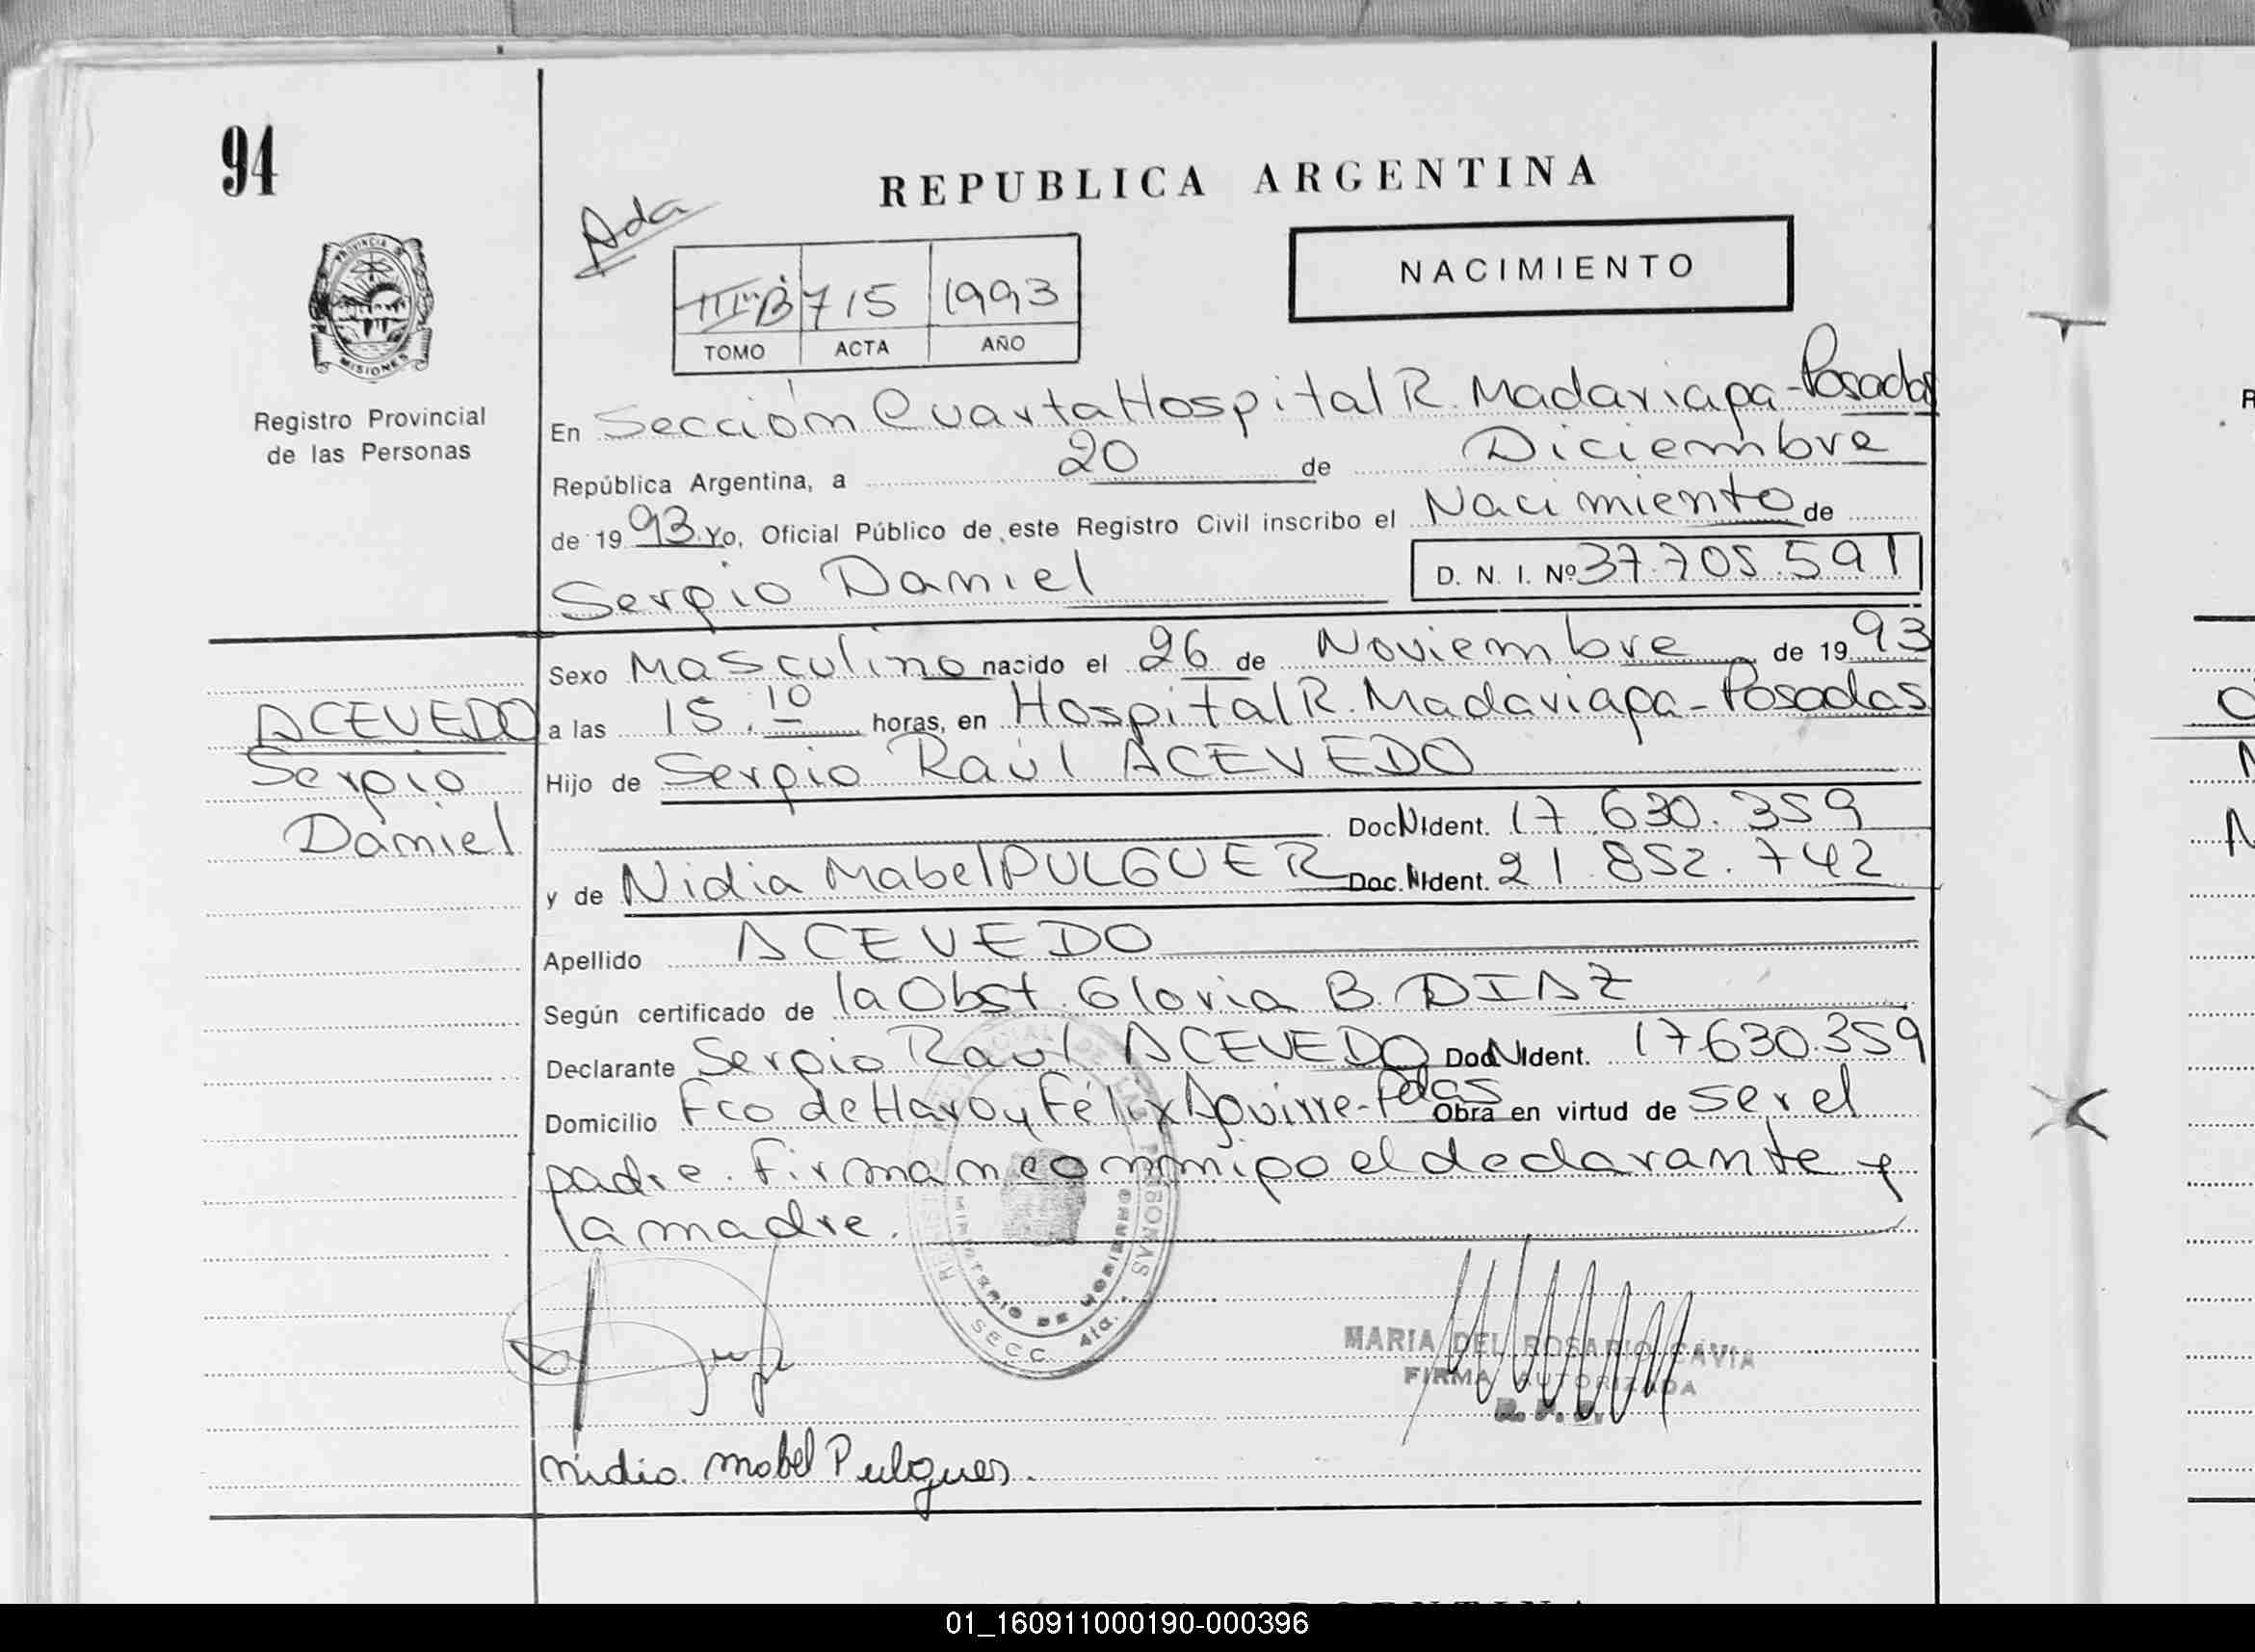 94
REPUBLICA ARGENTINA
Ada
NACIMIENTO
B 715 1993
TOMO ACTA AÑO
PROVINCIA DE
MISIONES
Registro Provincial
de las Personas
En Sección Cuarta Hospital R. Madariaga - Posadas
República Argentina, a 20 de Diciembre
de 1993. Yo, Oficial Público de este Registro Civil inscribo el Nacimiento de
Sergio Daniel D. N. I. Nº 37.705.591
Sexo Masculino nacido el 26 de Noviembre de 1993
a las 15.10 horas, en Hospital R. Madariaga - Posadas
Hijo de Sergio Raúl ACEVEDO
Doc N Ident. 17.630.359
y de Nidia Mabel PULGUER Doc. N Ident. 21.852.742
Apellido ACEVEDO
Según certificado de la Obst. Gloria B. DIAZ
Declarante Sergio Raúl ACEVEDO Doc N Ident. 17.630.359
Domicilio Fco de Haro y Félix Aguirre - Pdas Obra en virtud de ser el
padre. Firman conmigo el declarante y
la madre.
ACEVEDO
Sergio
Daniel
REGISTRO PROVINCIAL DE LAS PERSONAS
MINISTERIO DE GOBIERNO
SECC. 4ta.
MARIA DEL ROSARIO CAVIA
FIRMA AUTORIZADA
R. P. P.
nidia mabel Pulguer.
01_160911000190-000396